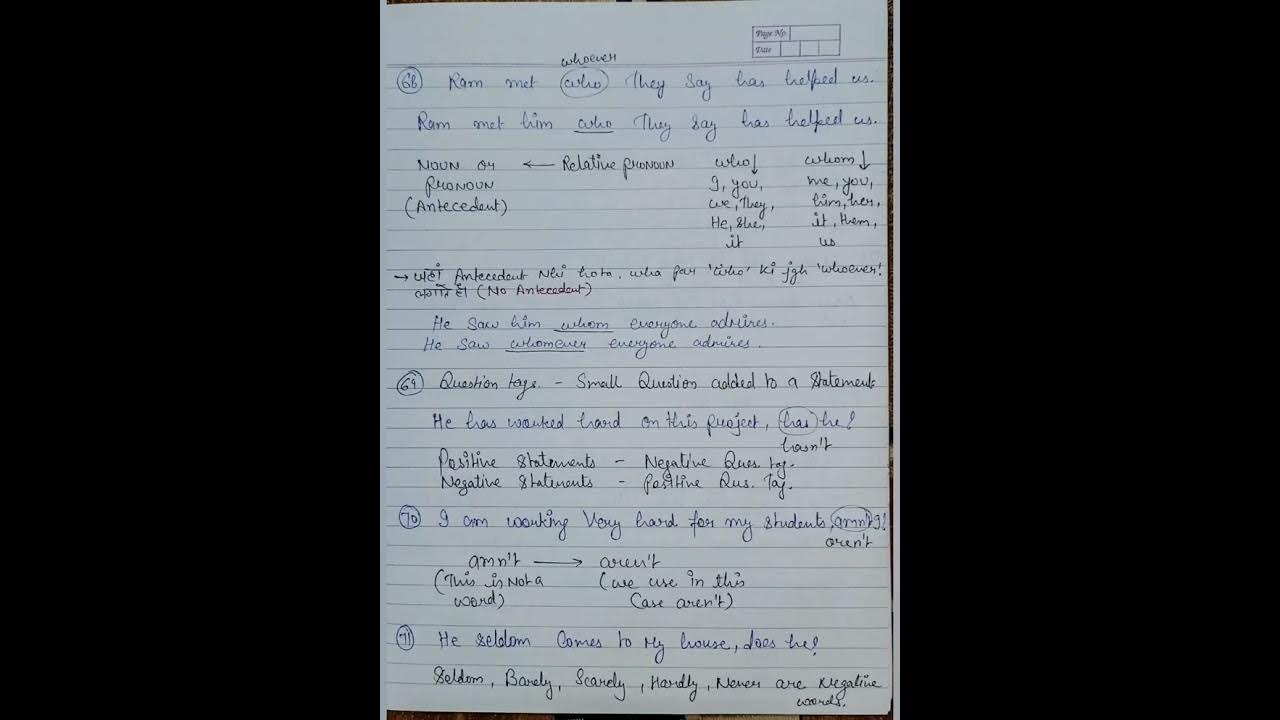 Page No.
Date
whoever
68 Ram met who They Say has helped us.
Ram met him who They Say has helped us.
NOUN or ← Relative PRONOUN who↓ whom↓
PRONOUN I, you, me, you,
(Antecedent) we, They, him, her,
He, She, it, them,
it us
→ जहां Antecedent Nhi hota, wha par 'who' ki jgh 'whoever'
लगाते हैं (No Antecedent)
He Saw him whom everyone admires.
He Saw whomever everyone admires.
69 Question tags. - Small Question added to a Statement
He has worked hard on this project, has he?
hasn't
Positive Statements - Negative Ques tag.
Negative Statements - Positive Qus. Tag.
70 I am working Very hard for my students, amn't I?
aren't
amn't → aren't
(This is Not a (we use in this
word) Case aren't)
71 He Seldom Comes to My house, does he?
Seldom, Barely, Scarely, Hardly, Never are Negative
words.